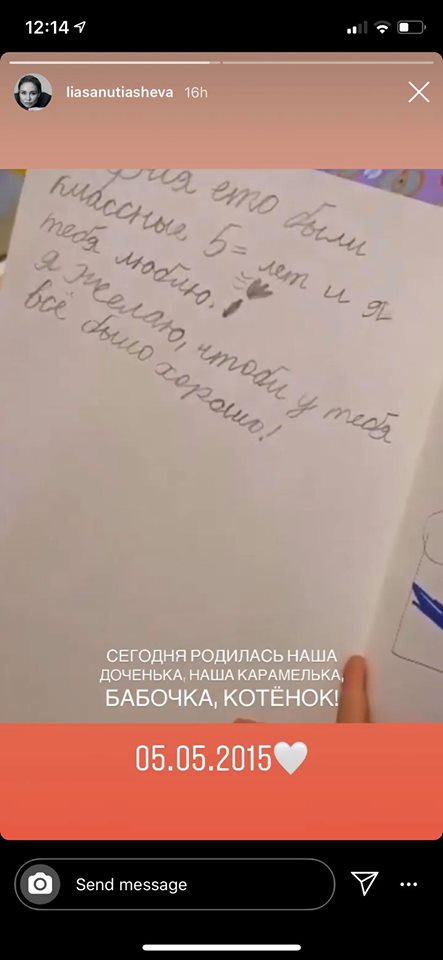 12:14
liasanutiasheva 16h
ето были
классные 5= лет и я
тебя люблю.
я желаю, чтоби у тебя
всё было хорошо!
СЕГОДНЯ РОДИЛАСЬ НАША
ДОЧЕНЬКА, НАША КАРАМЕЛЬКА,
БАБОЧКА, КОТЁНОК!
05.05.2015🤍
Send message